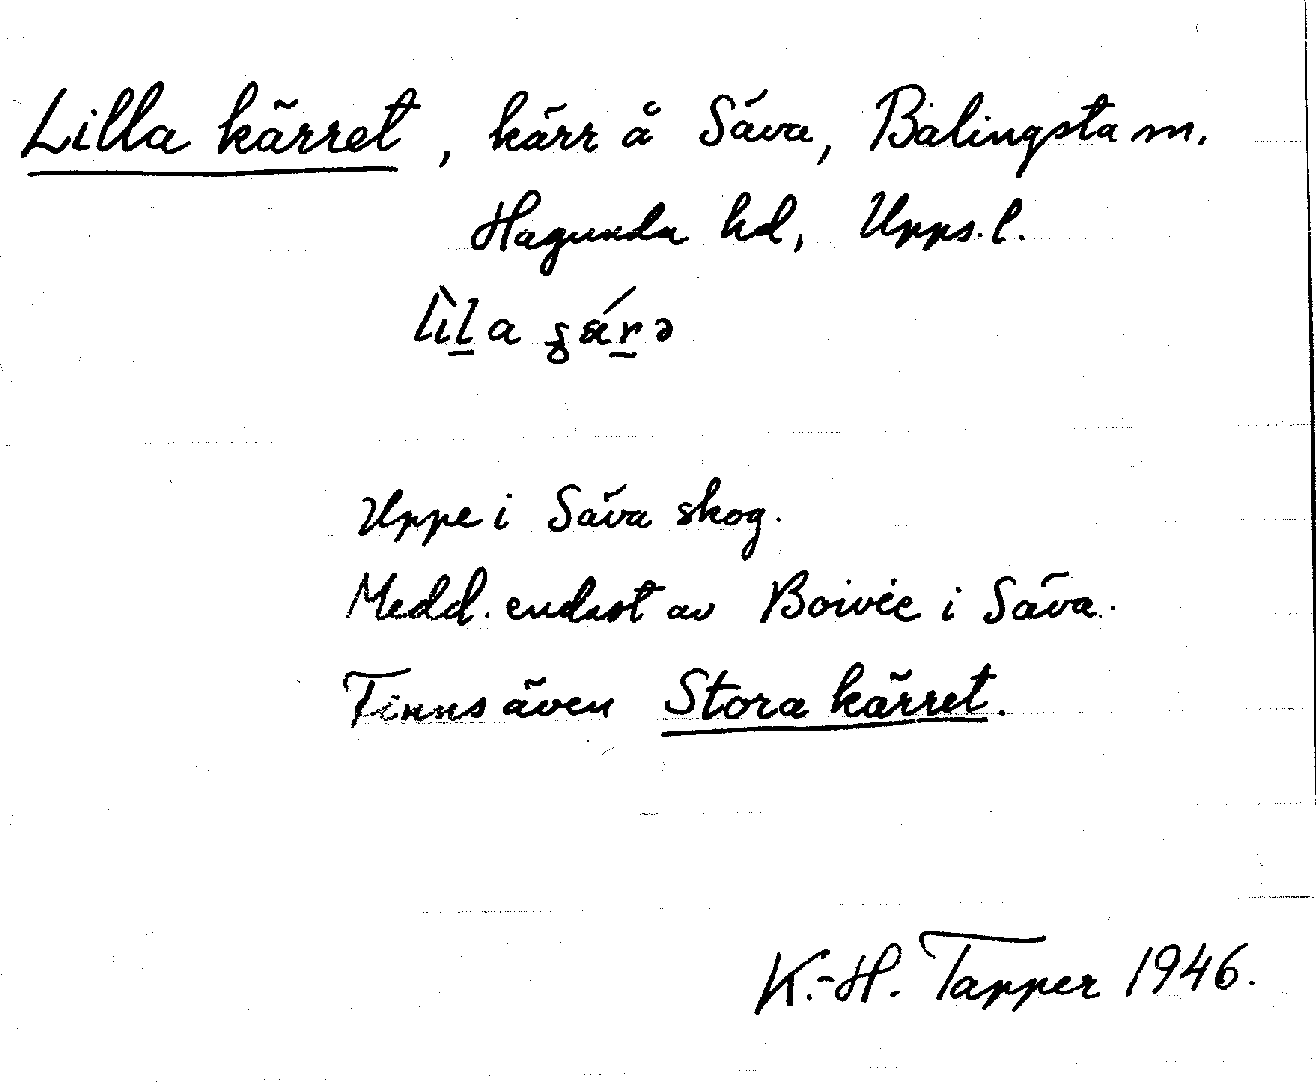 Lilla kärret, kärr å Säva, Balingsta sn.
Hagunda hd, Upps.l.
Uppe i Säva skog.
Medd. endast av Boivie i Säva.
Finns även Stora kärret.
K.-H. Tapper 1946.